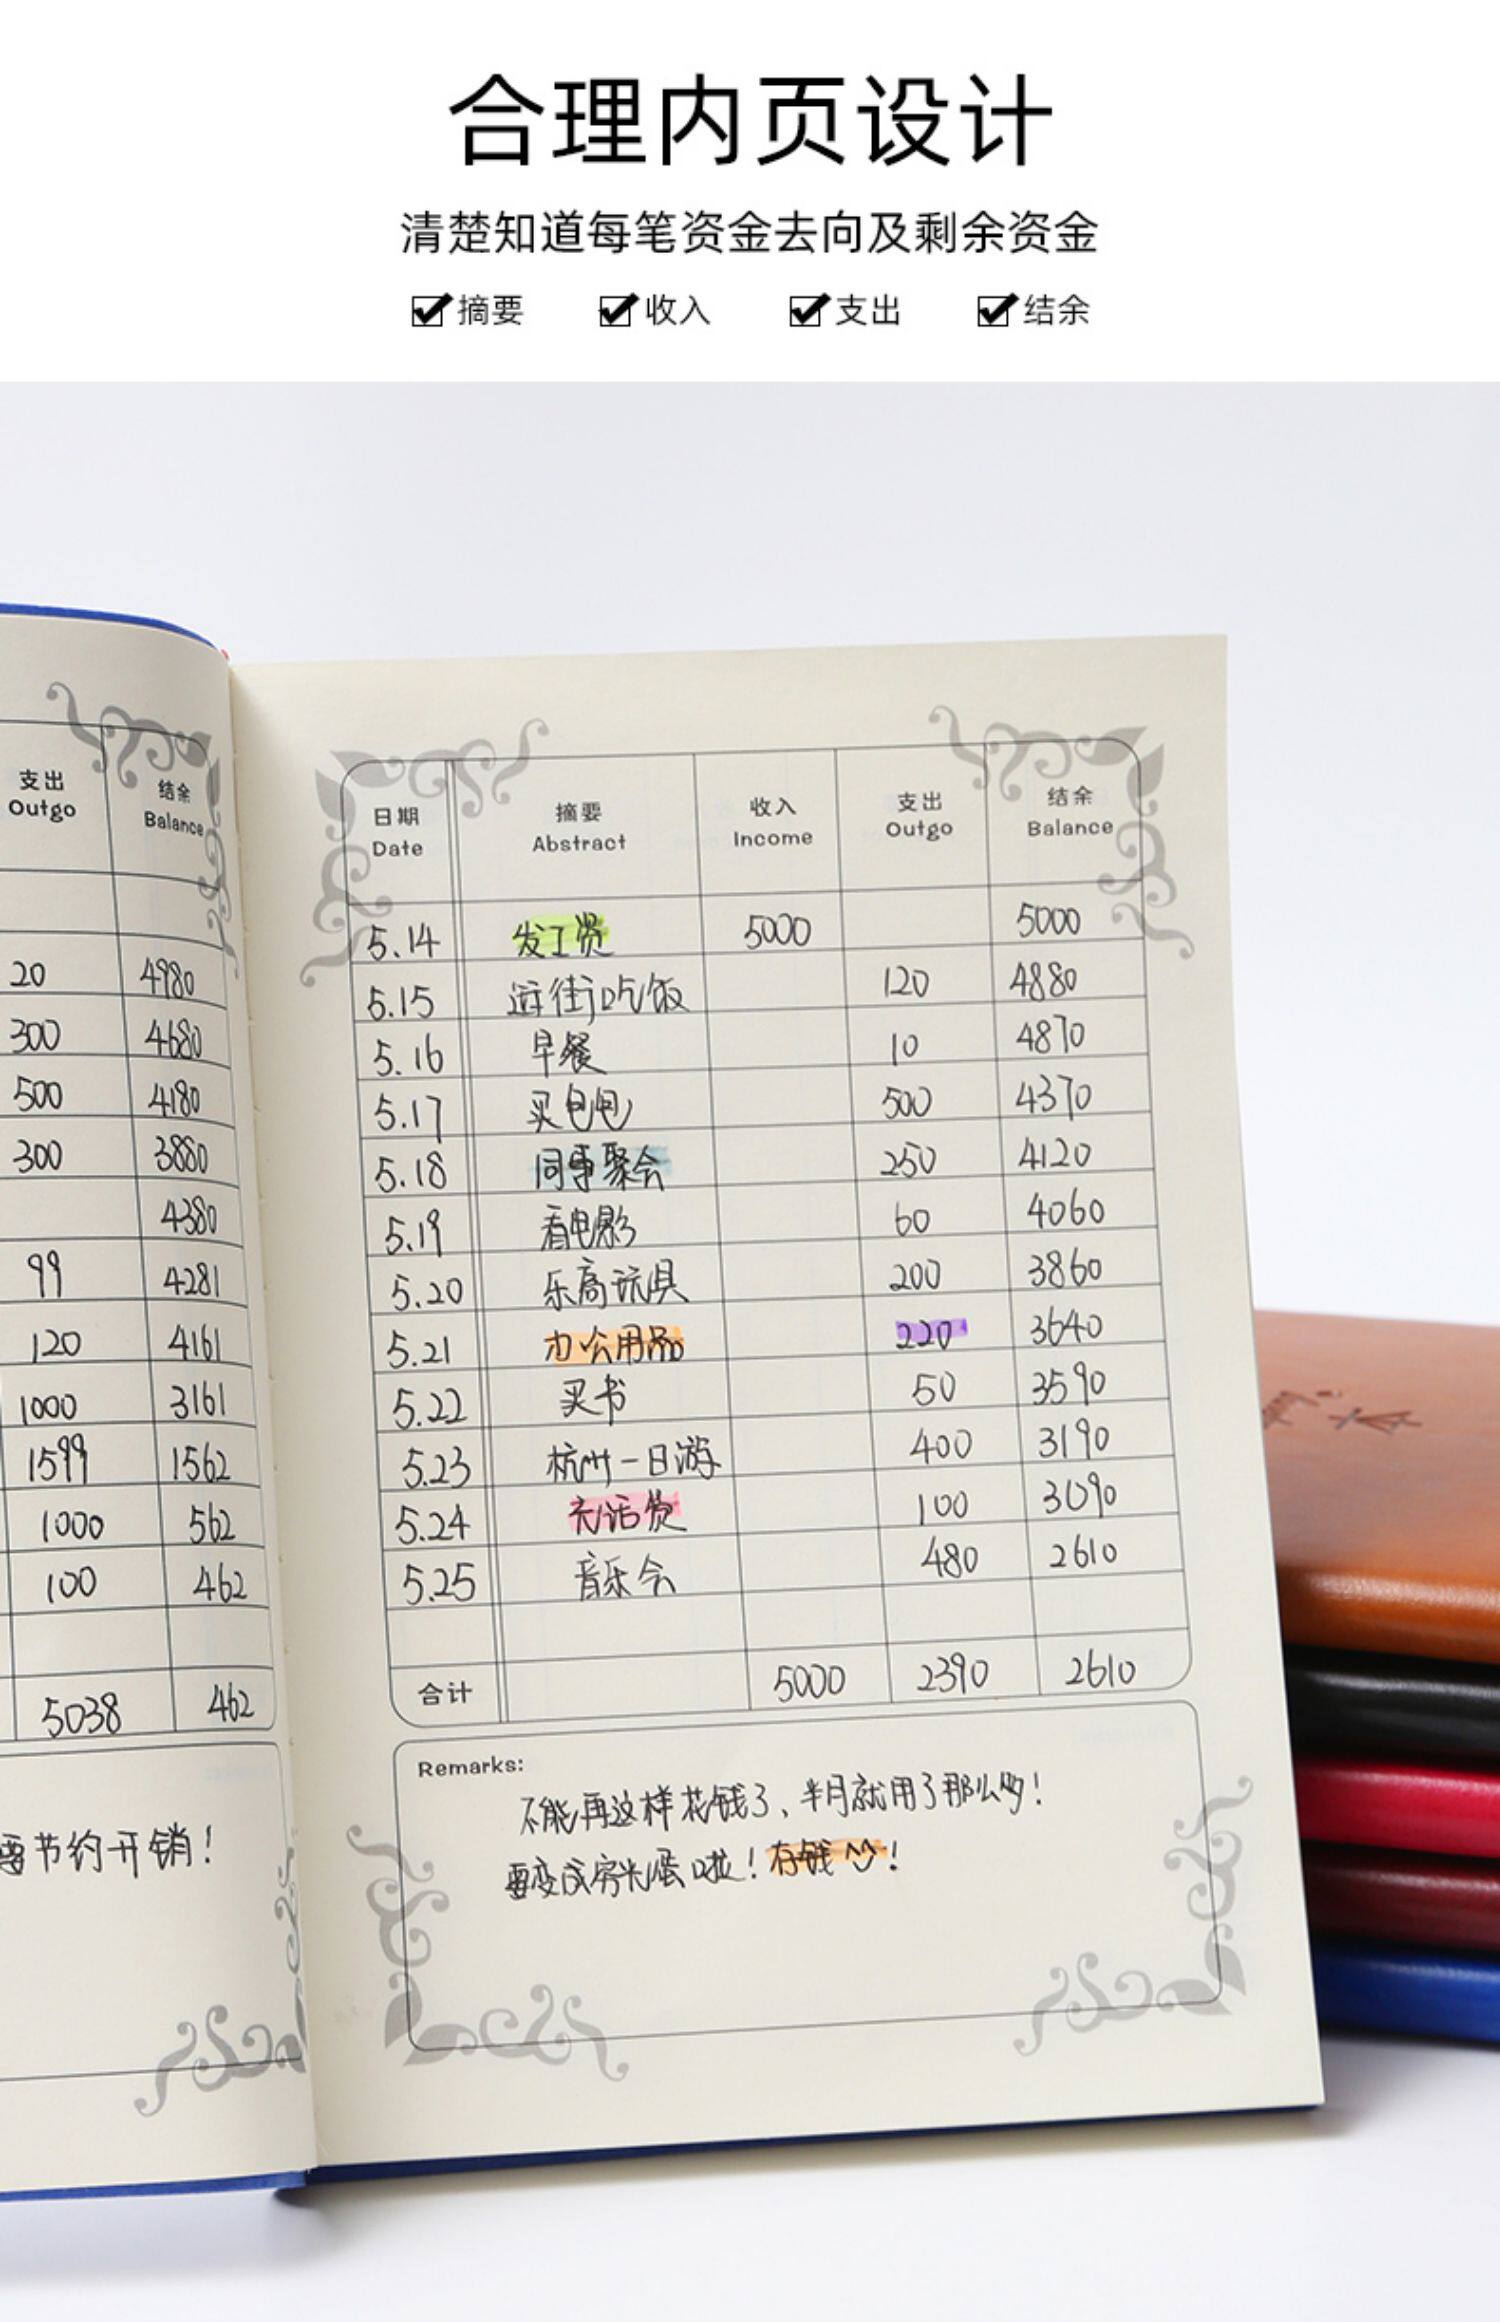 合理内页设计
清楚知道每笔资金去向及剩余资金
摘要 收入 支出 结余
支出 结余
Outgo Balance
20 4980
300 4680
500 4180
300 3880
4380
99 4281
120 4161
1000 3161
1599 1562
1000 562
100 462
5038 462
要节约开销!
日期 摘要 收入 支出 结余
Date Abstract Income Outgo Balance
5.14 发工资 5000 5000
5.15 逛街吃饭 120 4880
5.16 早餐 10 4870
5.17 买包包 500 4370
5.18 同事聚会 250 4120
5.19 看电影 60 4060
5.20 乐高玩具 200 3860
5.21 办公用品 220 3640
5.22 买书 50 3590
5.23 杭州一日游 400 3190
5.24 充话费 100 3090
5.25 音乐会 480 2610
合计 5000 2390 2610
Remarks:
不能再这样花钱了、半月就用了那么多!
要变成穷光蛋啦!存钱!